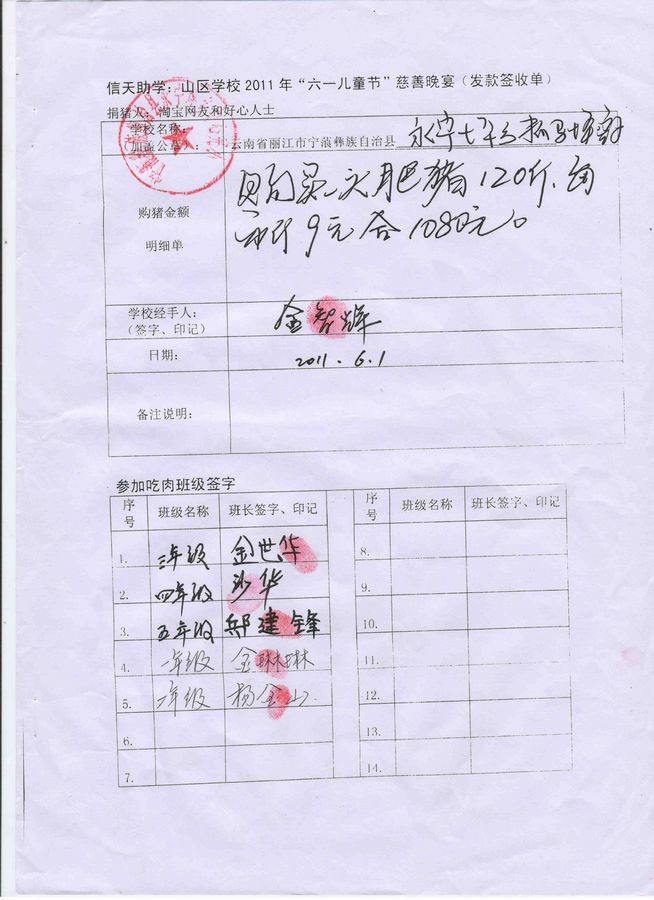 信天助学：山区学校2011年“六一儿童节”慈善晚宴（发款签收单）
捐猪人：淘宝网友和好心人士
学校名称：
加盖公章： 云南省丽江市宁蒗彝族自治县
购猪金额
明细单
头肥猪120斤，每
9元合1080元。
学校经手人：
（签字、印记）
金智辉
日期：
2011.6.1
备注说明：
参加吃肉班级签字
序号 班级名称 班长签字、印记 序号 班级名称 班长签字、印记
1. 三年级 金世华 8.
2. 四年级 沙华 9.
3. 五年级 邬建锋 10.
4. 一年级 金琳琳 11.
5. 二年级 杨金山 12.
6. 13.
7. 14.